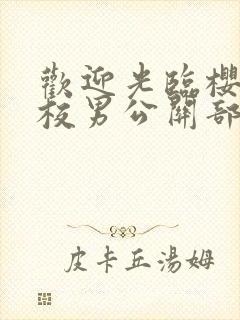 歡迎光臨櫻
校男公關部
皮卡丘湯姆